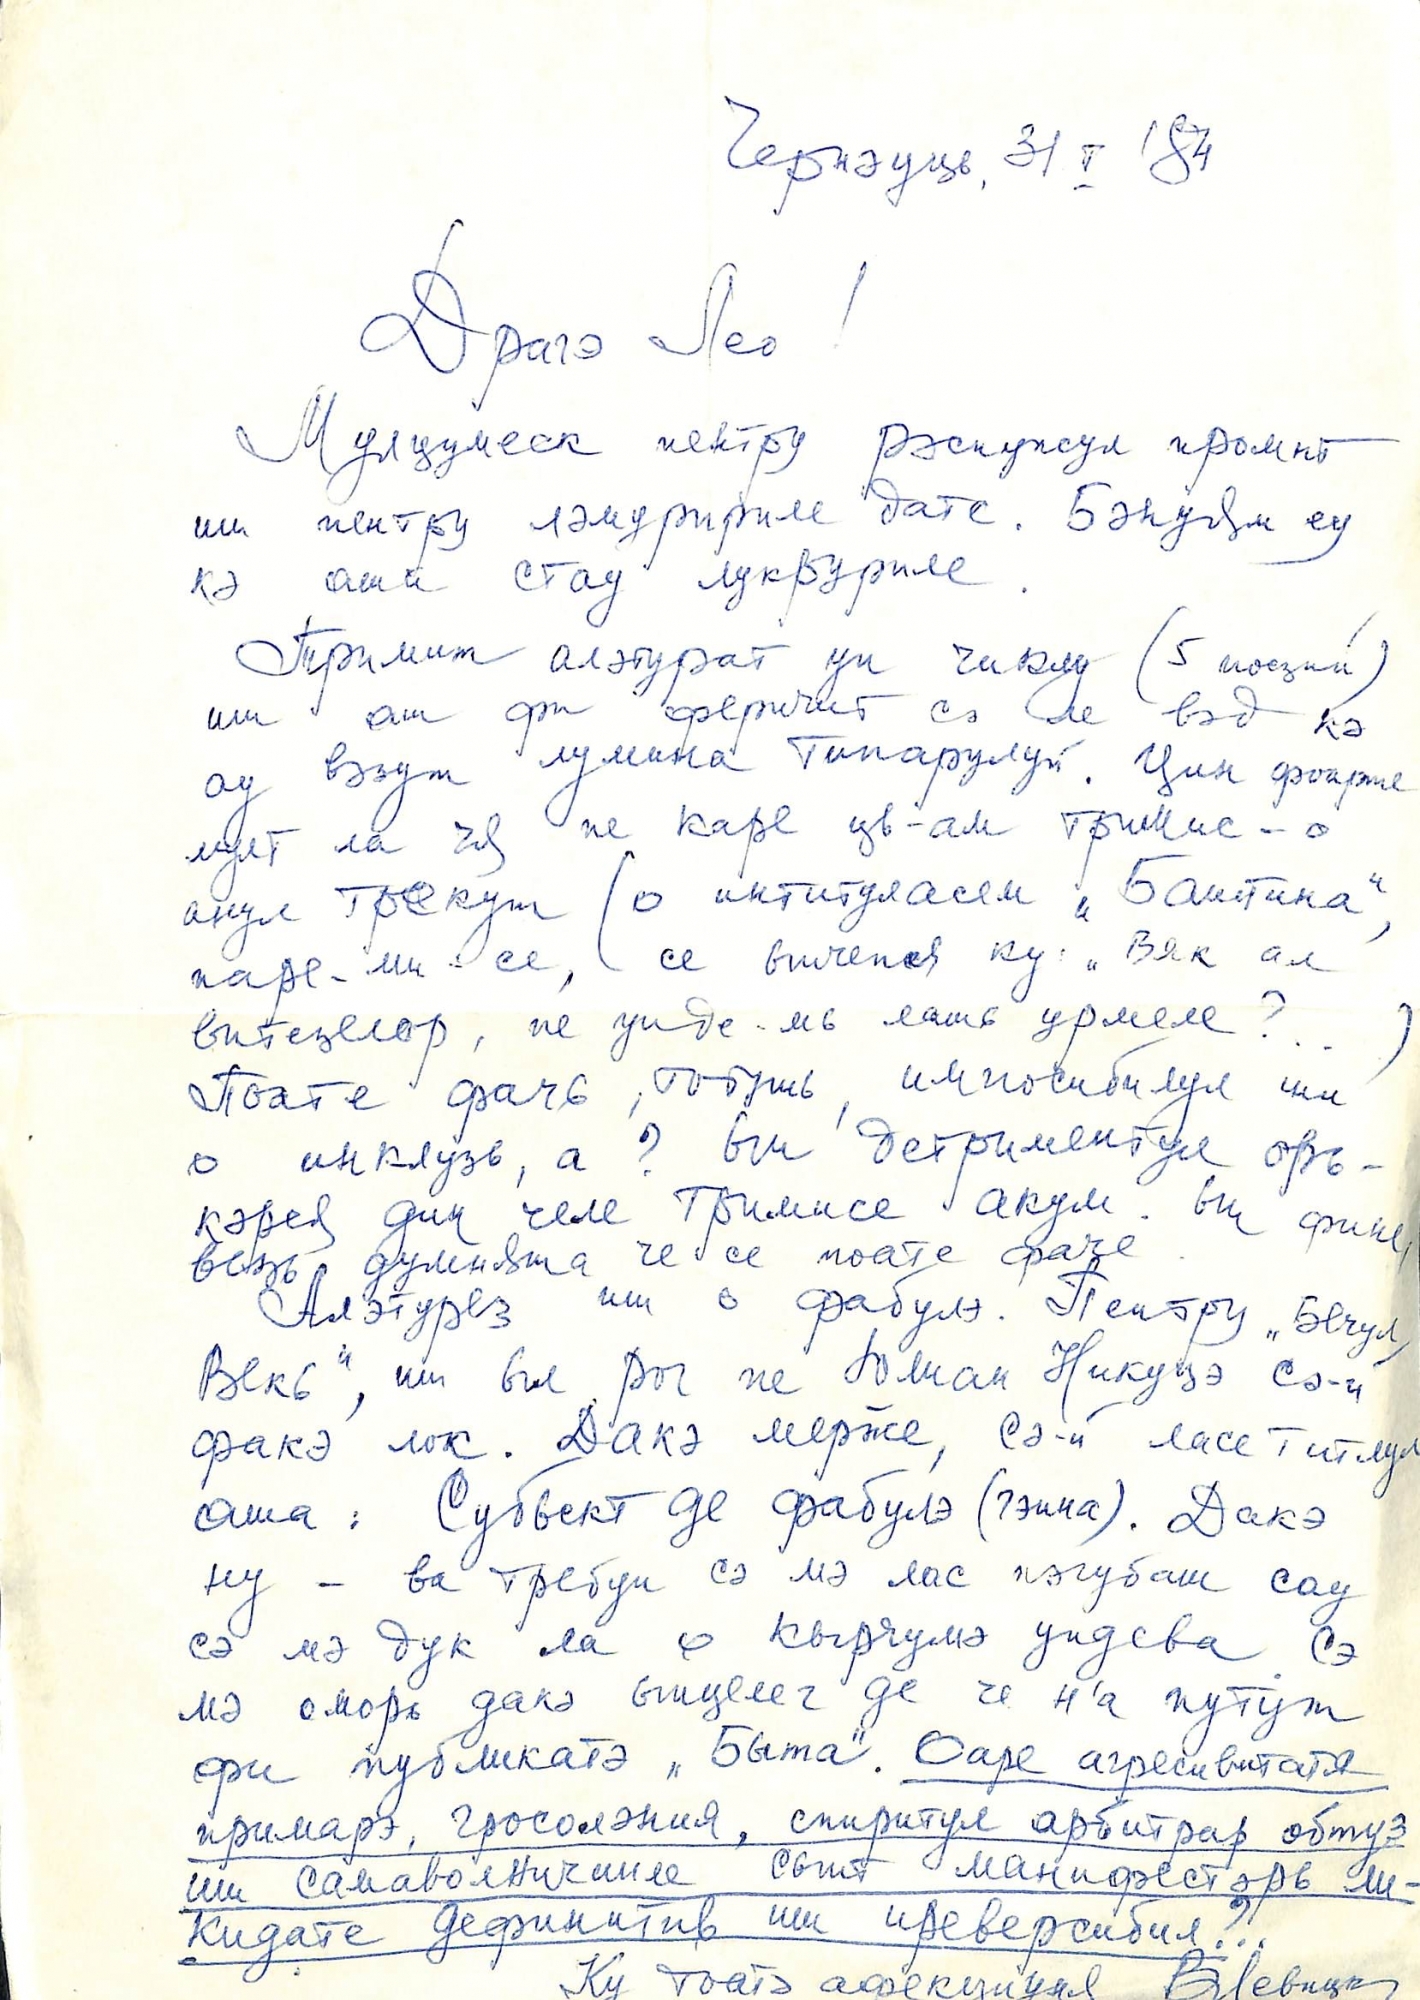 Чернэуць, 31 V '84
Драгэ Лео!
Мулцумеск пентру рэспунсул промпт
ши пентру лэмуририле дате. Бэнуям еу
кэ аша стау лукруриле.
Тримит алэтурат ун чиклу (5 поезий)
ши аш фи феричит сэ ле вэд кэ
ау вэзут лумина типарулуй. Цин фоарте
мулт ла чя пе каре ць-ам тримис-о
анул трекут (о интитуласем „Баштина“,
паре-ми-се, се ынчепя ку: „Вяк ал
витезилор, пе унде-мь лашь урмеле?..)
Поате фачь, тотушь, импосибилул ши
о инклузь, а? Ын детриментул орь-
кэрея дин челе тримисе акум. Ын фине,
везь думнята че се поате фаче.
Алэтурез ши о фабулэ. Пентру „Бечул
Векь“, ши ыл рог пе Юлиан Никуцэ сэ-й
факэ лок. Дакэ мерже, сэ-й ласе титлул
аша: Субьект де фабулэ (гэина). Дакэ
ну – ва требуи сэ мэ лас пэгубаш сау
сэ мэ дук ла о кырчумэ ундева сэ
мэ оморь дакэ ынцелег де че н'а путут
фи публикатэ „Быта“. Оаре агресивитатя
примарэ, гросолэния, спиритул арбитрар обтуз
ши самаволничииле сынт манифестэрь ли-
кидате дефинитив ши иреверсибил?!..
Ку тоатэ афекциуня ВЛевицки